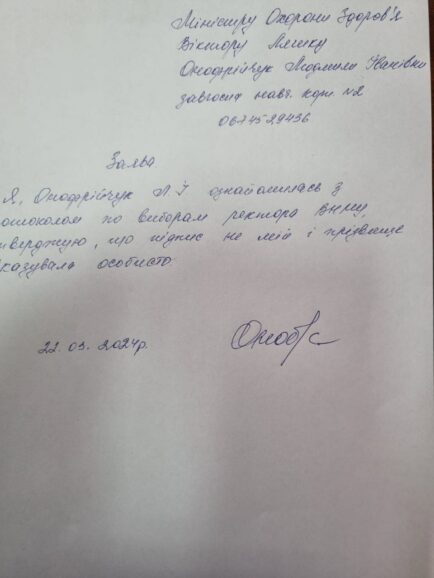 Міністру Охорони Здоров'я
Віктору Ляшку
Онофрійчук Людмили Іванівни
завгосп навч. корп. №2
0674529436
Заява
Я, Онофрійчук Л.І ознайомилась з
ротоколом по виборам ректора ВНМУ,
тверджую, що підпис не мій і прізвище
казувала особисто
22.03.2024р.